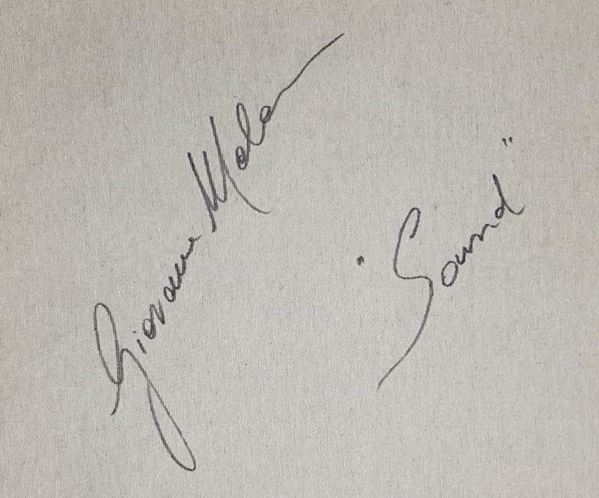 Giovanni Mala
"Sound"